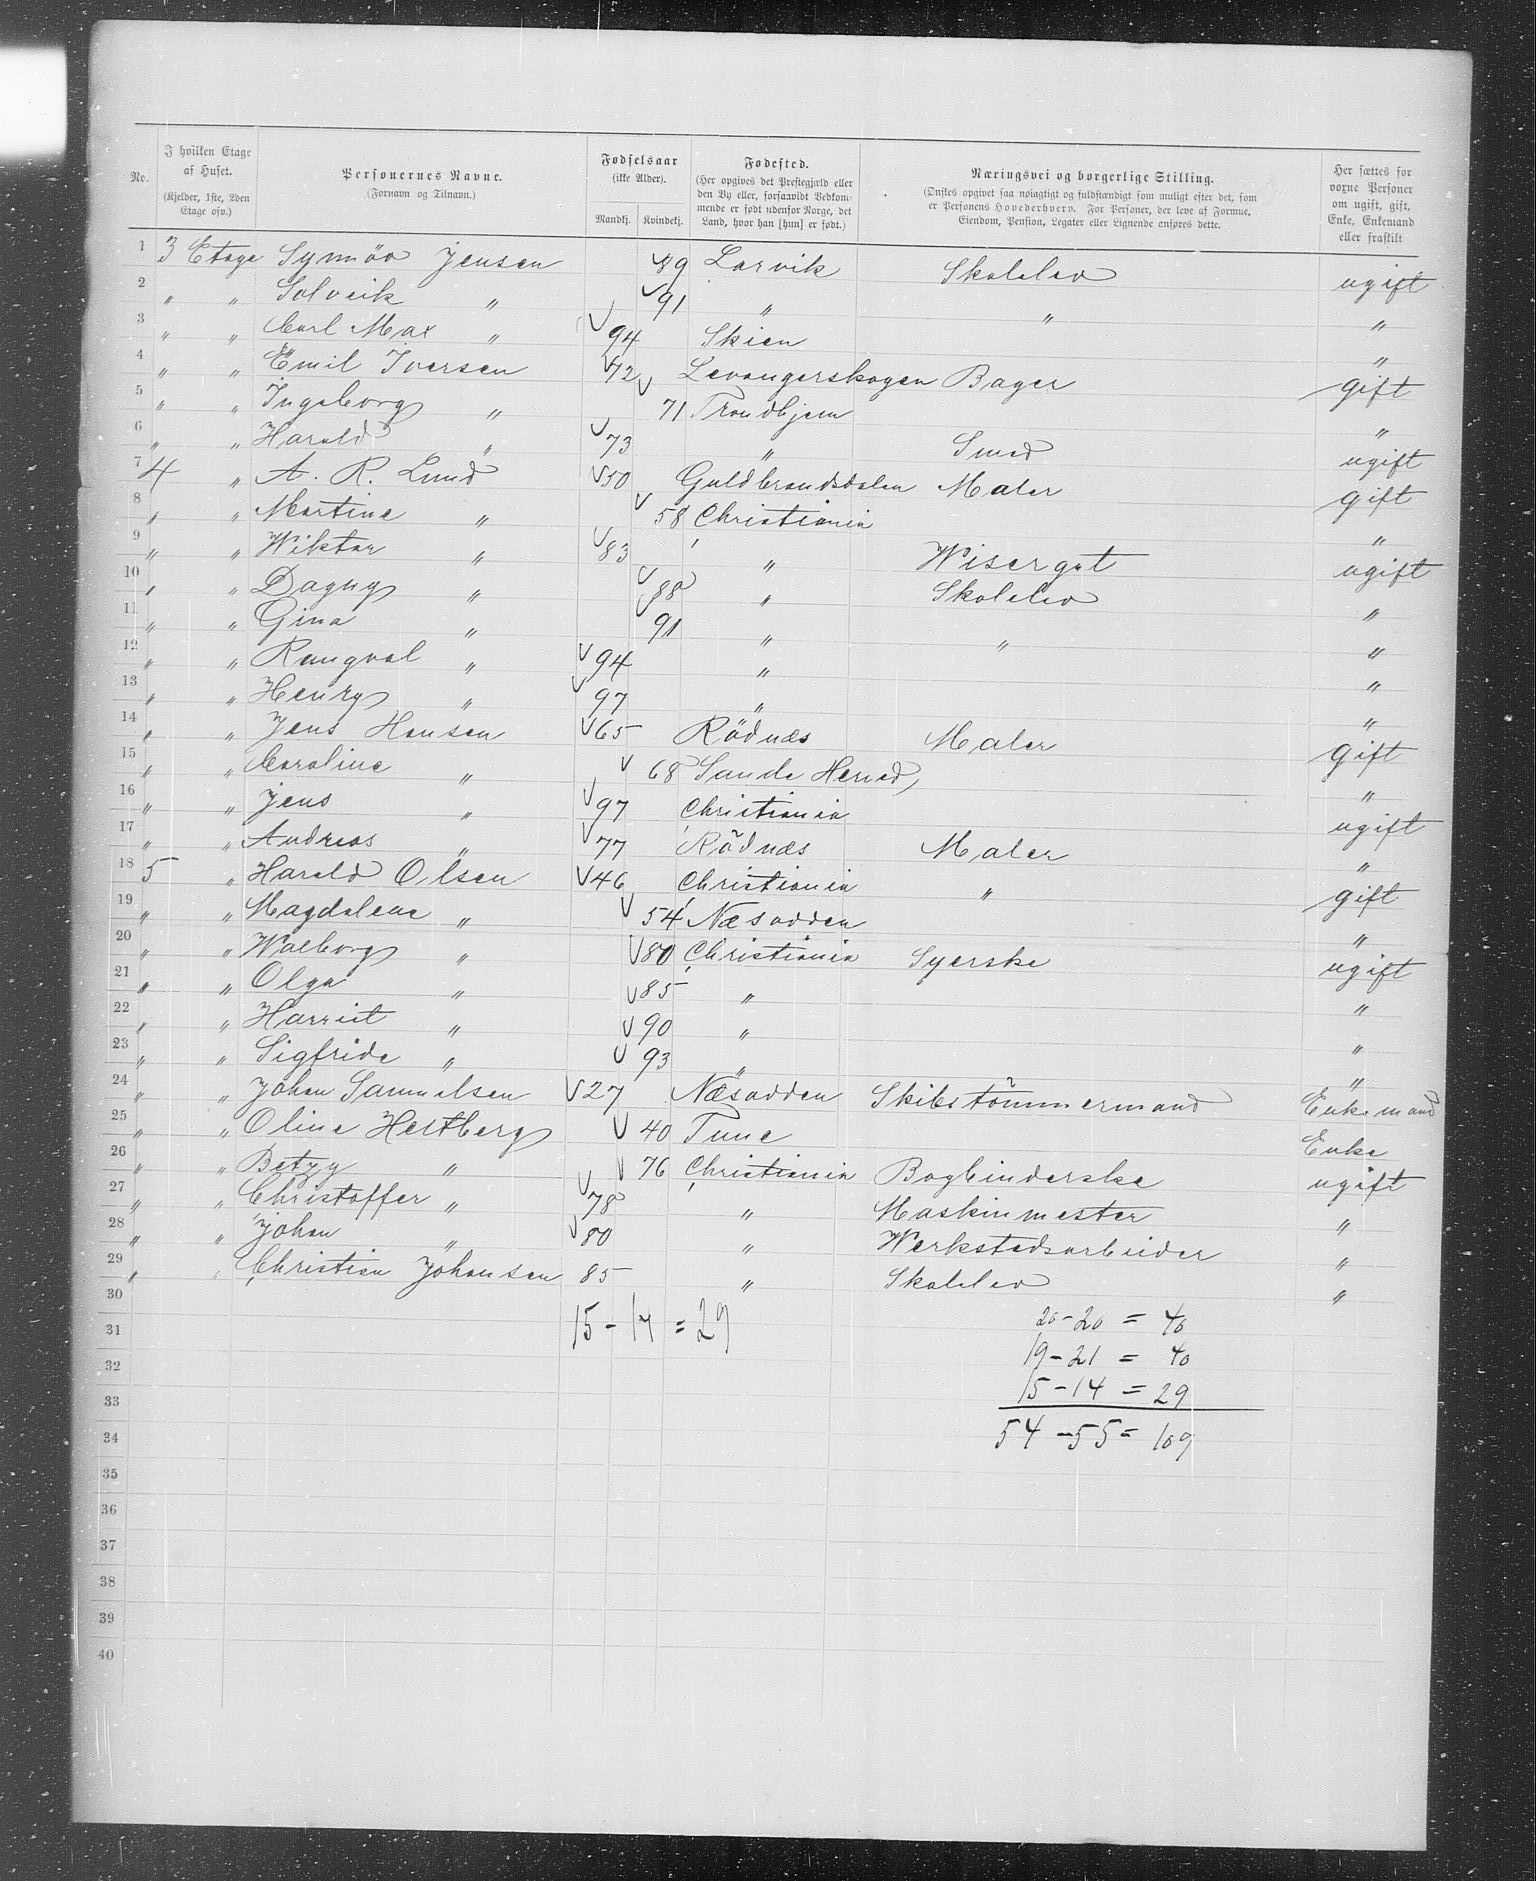 No. | I hvilken Etage af Huset. (Kjelder, 1ste, 2den Etage osv.) | Personernes Navne. (Fornavn og Tilnavn.) | Fødselsaar (ikke Alder). Mandkj. | Kvindekj. | Fødested. (Her opgives det Prestegjæld eller den By eller, forsaavidt Vedkommende er født udenfor Norge, det Land, hvor han [hun] er født.) | Næringsvei og borgerlige Stilling. (Ønskes opgivet saa nøiagtigt og fuldstændigt som muligt efter det, som er Personens Hovederhverv. For Personer, der leve af Formue, Eiendom, Pension, Legater eller Lignende anføres dette.) | Her sættes for voxne Personer om ugift, gift, Enke, Enkemand eller fraskilt
1 3 Etage Synnöv Jensen 89 Larvik Skoleelev ugift
2 " " Solveik " 91 " " "
3 " " Carl Max " 94 Skien "
4 " " Emil Iversen 72 Levangerskogen Bager gift
5 " " Ingeborg " 71 Trondhjem "
6 " " Harald " 73 " Smed ugift
7 4 " A. R. Lund 50 Guldbrandsdalen Maler gift
8 " " Martine " 58 Christiania "
9 " " Wiktor " 83 " Wisergut ugift
10 " " Dagny " 88 " Skolelev "
11 " " Gina " 91 " " "
12 " " Rangval " 94 " "
13 " " Henry " 97 " "
14 " " Jens Hansen 65 Rödnæs Maler gift
15 " " Caroline " 68 Sande Herred, "
16 " " Jens " 97 Christiania ugift
17 " " Andreas " 77 Rödnæs Maler "
18 5 " Harald Olsen 46 Christiania " gift
19 " " Magdalene " 54 Næsodden "
20 " " Walborg " 80 Christiania Syerske ugift
21 " " Olga " 85 " "
22 " " Harriet " 90 " "
23 " " Sigfride " 93 " "
24 " " Johan Samuelsen 27 Næsodden Skibstömmermand Enkemand
25 " " Oline Hertberg 40 Tune Enke
26 " " Betzy " 76 Christiania Bogbinderske ugift
27 " " Christoffer " 78 " Maskinmester "
28 " " Johan " 80 " Werkstedsarbeider "
29 " " Christian Johansen 85 " Skolelev "
30
31 15 - 14 = 29 20 - 20 = 40
32 19 - 21 = 40
33 15 - 14 = 29
34 54 - 55 = 109
35
36
37
38
39
40